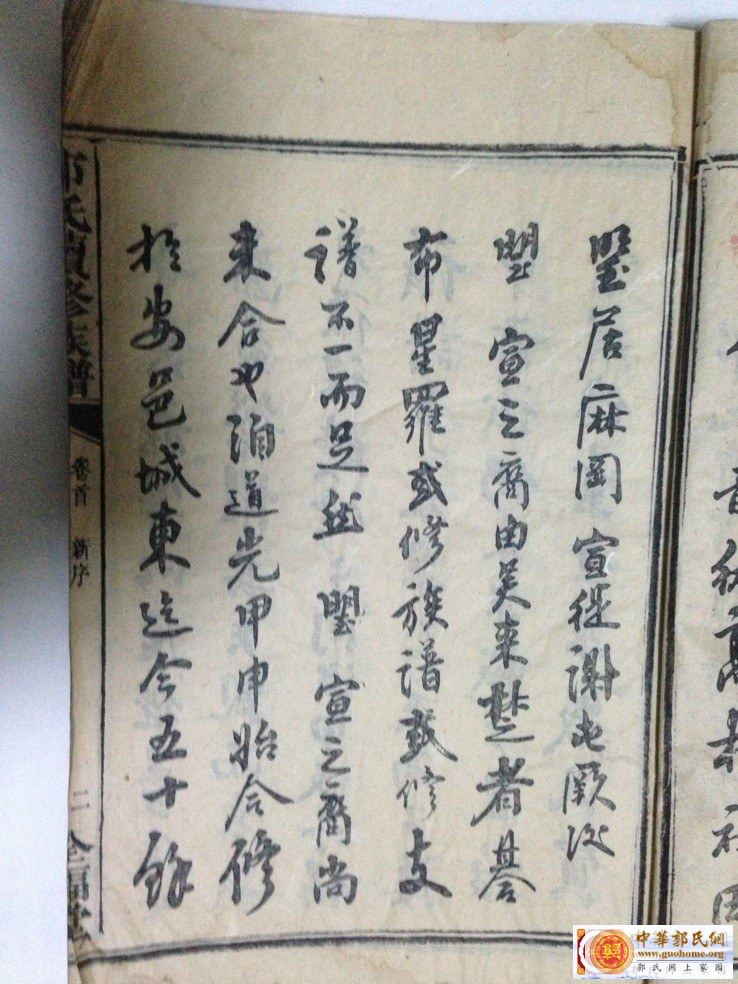 壂居麻岡宣徙謝屯厥後
壂宣之裔由吳來楚者碁
布星羅或修族譜或修支
譜不一而足然壂宣之裔尚
未合也洎道光甲申始合修
於安邑城東迄今五十餘
郭氏續修族譜
卷首
新序
二
全福堂
中華郭氏網
www.guohome.org
郭氏网上家园